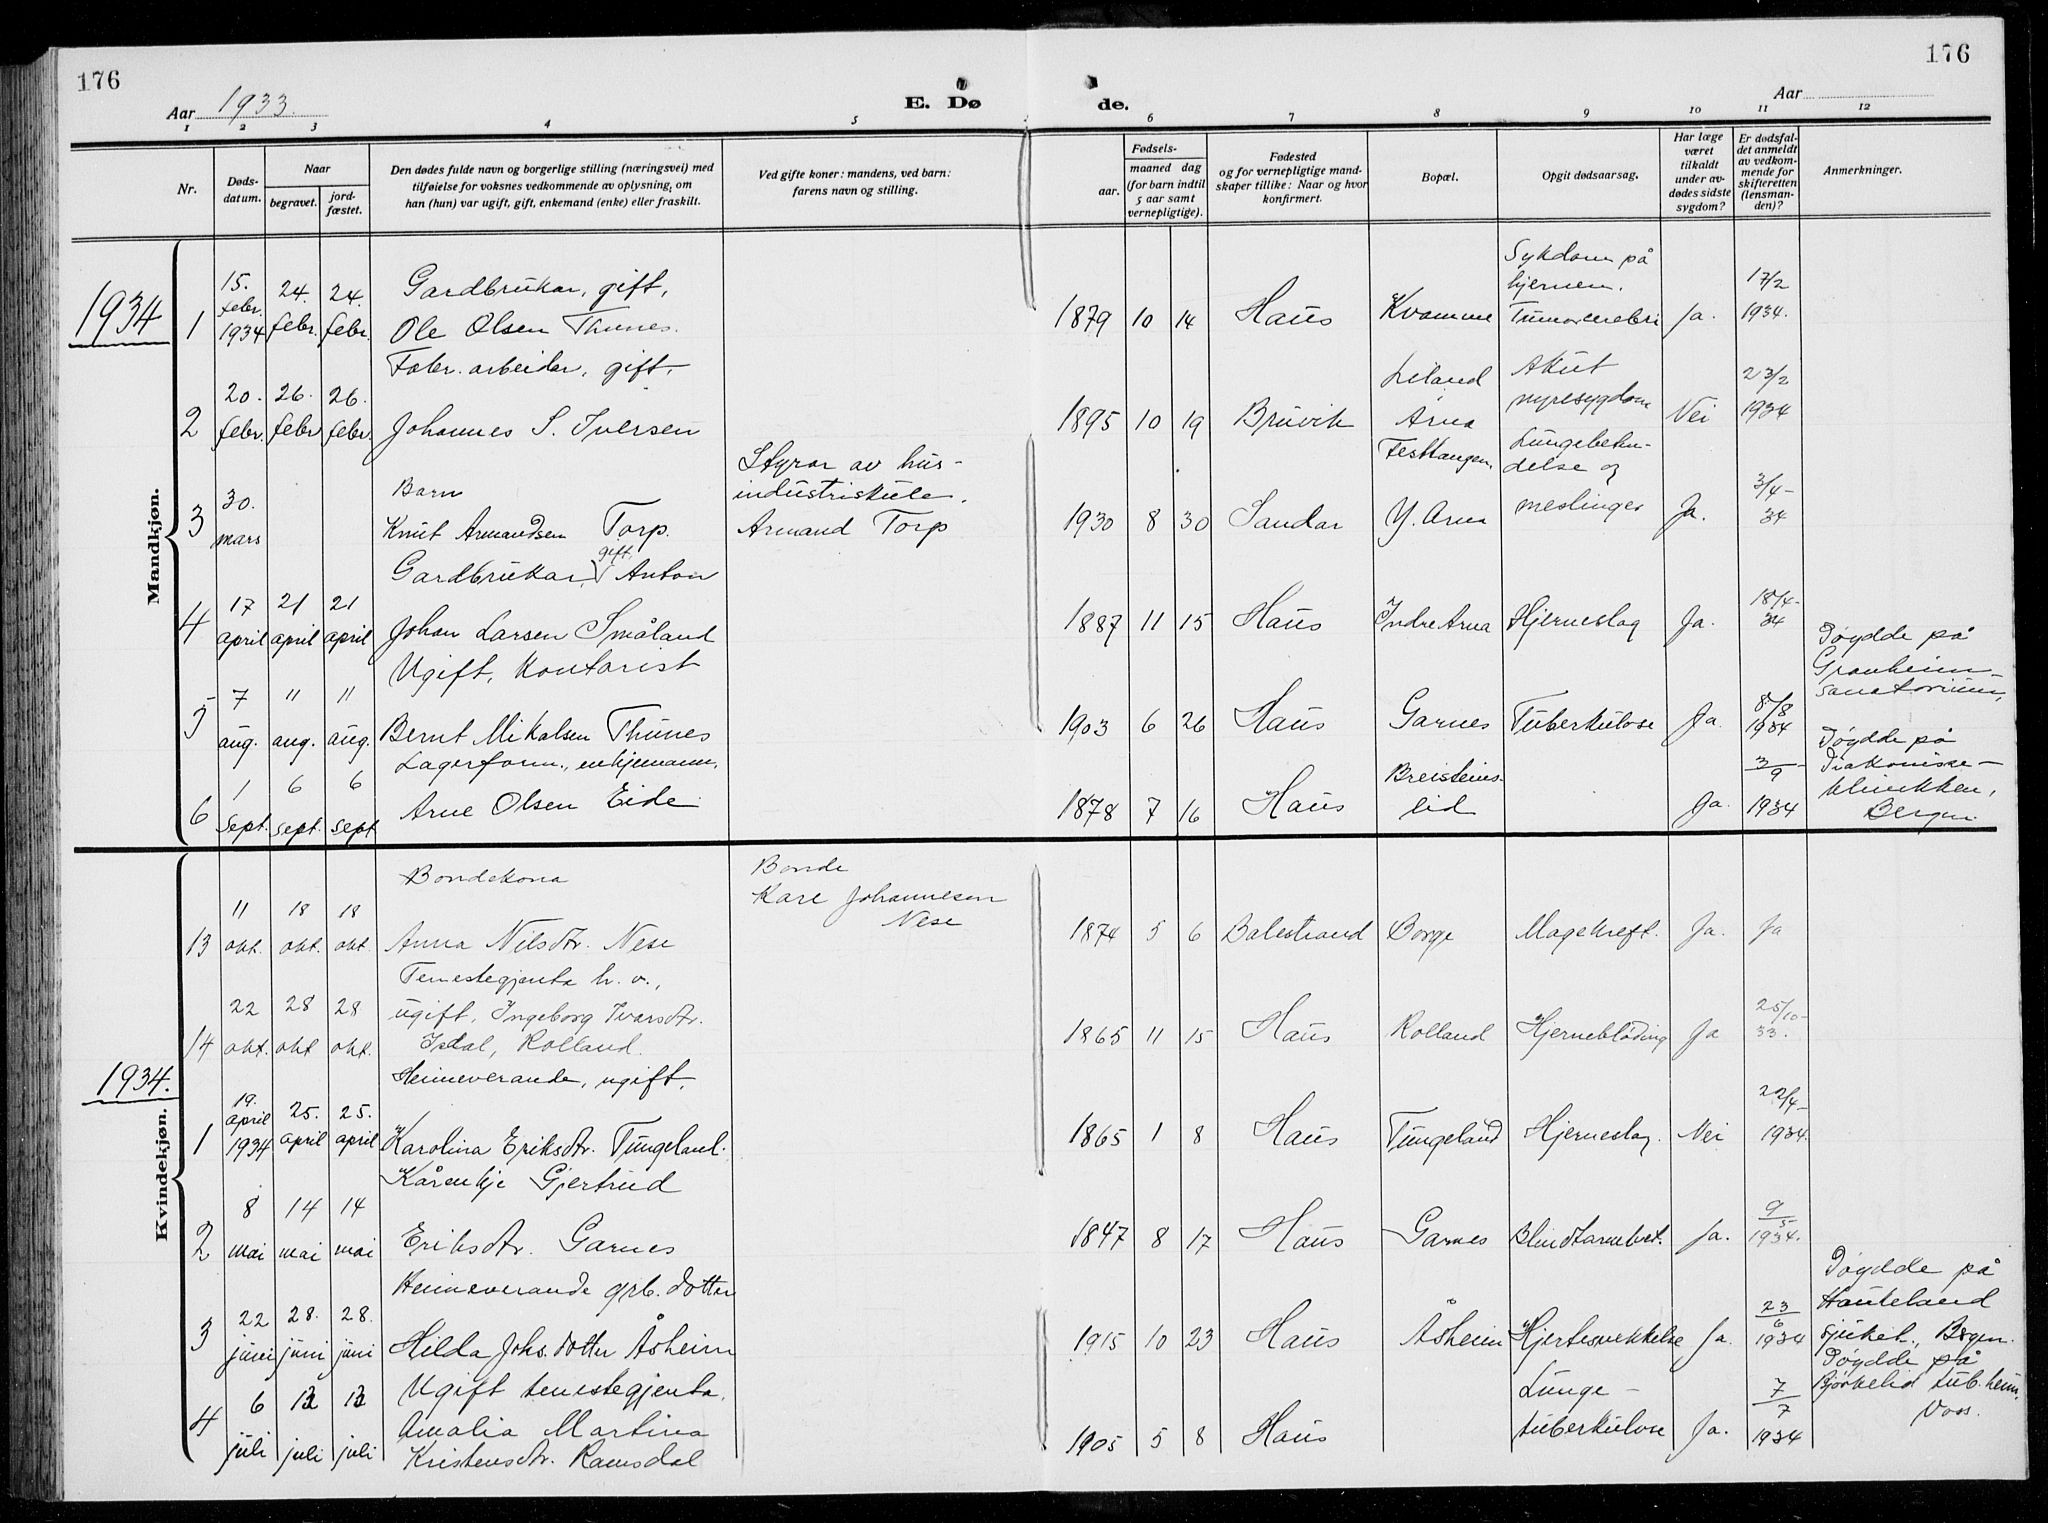 176
176
Aar 1933.
E. Dø de.
Aar
1 2 3 4 5 6 7 8 9 10 11 12
Nr.
Døds-
datum.
Naar
begravet.
jord-
fæstet.
Den dødes fulde navn og borgerlige stilling (næringsvei) med
tilføielse for voksnes vedkommende av oplysning, om
han (hun) var ugift, gift, enkemand (enke) eller fraskilt.
Ved gifte koner: mandens, ved barn:
farens navn og stilling.
Fødsels-
aar.
maaned dag
(for barn indtil
5 aar samt
vernepligtige).
Fødested
og for vernepligtige mand-
skaper tillike: Naar og hvor
konfirmert.
Bopæl.
Opgit dødsaarsag.
Har læge
været
tilkaldt
under av-
dødes sidste
sygdom?
Er dødsfal-
det anmeldt
av vedkom-
mende for
skifteretten
(lensman-
den)?
Anmerkninger.
Mandkjøn.
1934
1
15.
febr.
1934
24.
febr.
24.
febr.
Gardbrukar, gift,
Ole Olsen Tunes.
1879 10 14
Haus
Kvamme
Sykdom på
hjernen.
Tumor cerebri
Ja.
17/2
1934.
2
20.
febr.
26.
febr
26.
febr.
Fabr. arbeider, gift,
Johannes S. Iversen
1895 10 19
Bruvik
Liland
Arna
Akut
nyresygdom
Nei
23/2
1934
3
30.
mars
Barn
Knut Armandsen Torp.
Styrar av hus-
industriskule.
Armand Torp
1930 8 30
Sandar
Festtangen,
Y. Arna
Lungebeten-
delse og
meslinger
Ja.
3/4-
34
4
17
april
21
april
21
april
Gardbrukar, gift, Anton
Johan Larsen Småland
1887 11 15
Haus
Indre Arna
Hjerneslag
Ja.
18/4-
34
5
7
aug.
11
aug.
11
aug.
Ugift, Kontorist
Bernt Mikalsen Thunes
1903 6 26
Haus
Garnes
Tuberkulose
Ja.
8/8
1934
Døydde på
Granheim-
sanatorium,
6
1
sept.
6
sept.
6
sept
Lagerform., enkjemann,
Arne Olsen Eide
1878 7 16
Haus
Breisteins-
lid
Ja.
3/9-
1934
Døydde på
Diakonisse-
klinikken,
Bergen.
Kvindekjøn.
13
11
okt.
18
okt.
18
okt.
Bondekona
Anna Nilsdtr. Nese
Bonde
Kare Johannesen
Nese
1874 5 6
Balestrand
Borge
Magekreft.
Ja.
Ja
14
22
okt.
28
okt
28
okt.
Tenestegjenta h. v.,
ugift, Ingeborg Ivarsdtr.
Isdal, Rolland.
1865 11 15
Haus
Rolland
Hjerneblöding
Ja
25/10-
33.
1934.
1
19.
april
1934
25.
april
25.
april
Heimeverande, ugift,
Karolina Eriksdtr. Tungeland.
1865 1 8
Haus
Tungeland
Hjerneslag.
Nei
22/4-
1934.
2
8
mai
14
mai
14
mai
Kårenkje Gjertrud
Eriksdtr. Garnes
1847 8 17
Haus
Garnes
Blindtarmbet.
Ja.
9/5-
1934.
3
22
juni
28.
juni
28.
juni
Heimeverande grb. dotter
Hilda Johs. dotter Åsheim
1915 10 23
Haus
Åsheim
Hjertesvekkelse
Ja.
23/6
1934
Døydde på
Haukeland
sjukeh., Bergen.
4
6
juli
juli
juli
Ugift tenestegjenta,
Amalia Martina
Kristensdtr. Ramsdal
1905 5 8
Haus
Lunge-
tuberkulose
Ja.
7/7
1934
Døydde på
Bjørkelid tub. heim,
Voss.